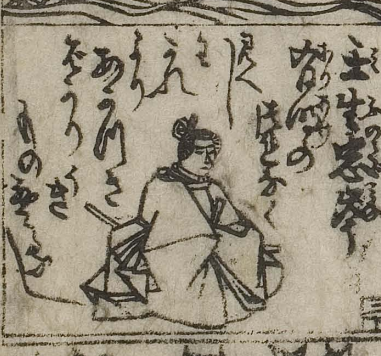 壬生忠岑
有明の
つれなく
見へし
わかれ
より
あかつき
ばかり
うき
ものはなし